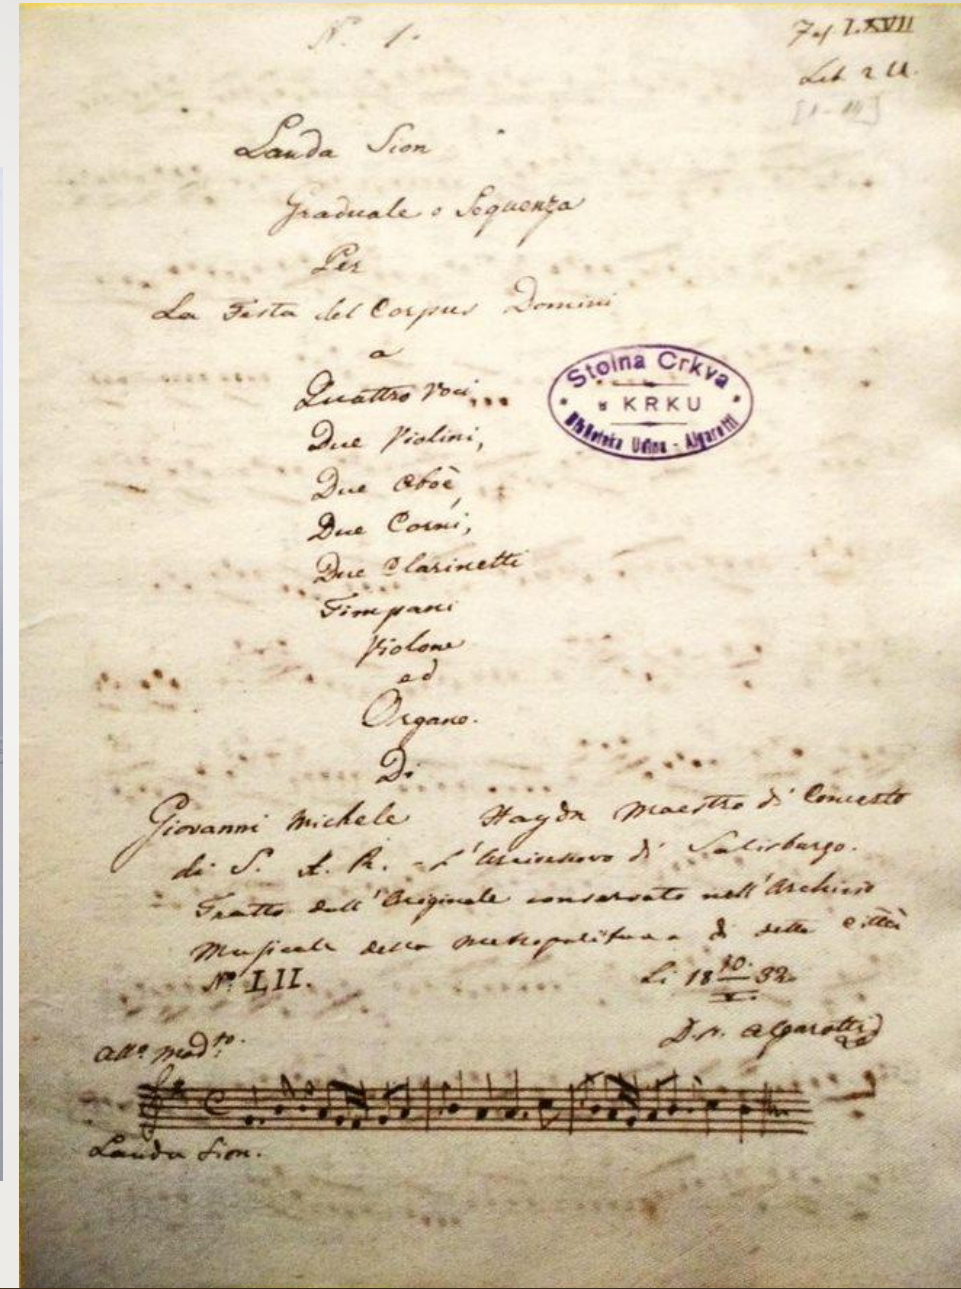 Nº 1.
LXVII
Lauda Sion
Graduale o Sequenza
Per
La Festa del Corpus Domini
a
Quattro Voci
Due Violini,
Due Oboè
Due Corni,
Due Clarinetti
Timpani
Violone
ed
Organo.
Di
Giovanni Michele Haydn Maestro di Concerto
di S. A. R. L'Arcivescovo di Salisburgo.
Tratto dall'Originale conservato nell'Archivio
Musicale della Metropolitana di detta Città
Nº LII.
Li 18 10. 32.
Algarotti
Stolna Crkva
u KRKU
Biblioteka Udina - Algarotti
All.º mod.to
Lauda Sion.